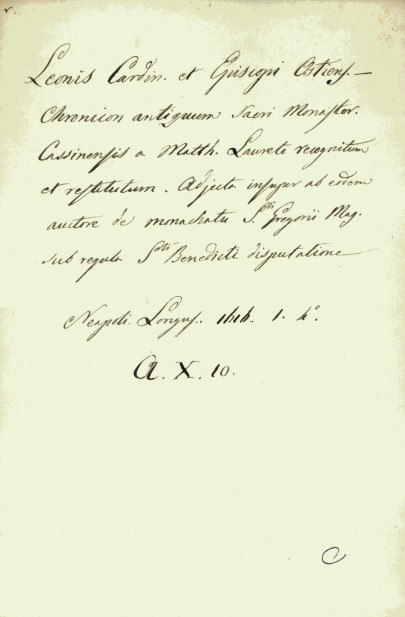 Leonis Cardin. et Episcopi Ostiens. —
Chronicon antiquum Sacri Monaster.
Cassinensis a Matth. Laureto recognitum
et restitutum. Adjecta insuper ab eodem
autore de monachatu S.cti Gregorii Mag.
sub regula S.cti Benedicti disputatione
Neapoli. Longus. 1616. 1. 4°.
A. X. 10.
C